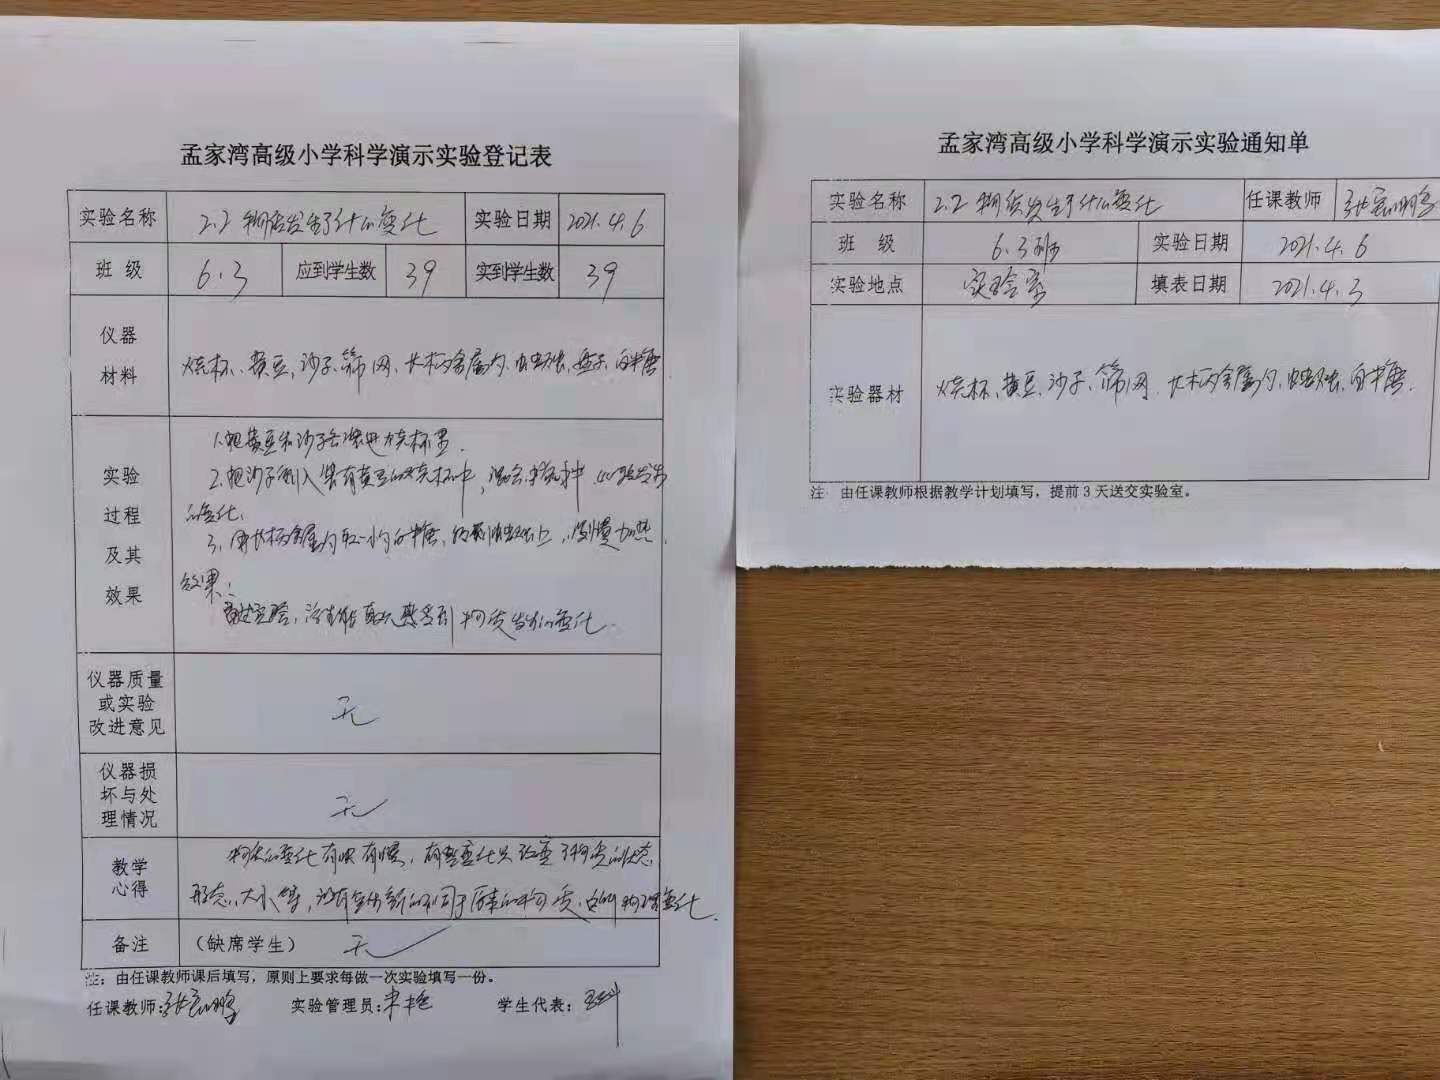 孟家湾高级小学科学演示实验登记表
实验名称 2.2 物质发生了什么变化 实验日期 2021.4.6
班 级 6.3 应到学生数 39 实到学生数 39
仪器
材料
烧杯、黄豆、沙子、筛网、长柄金属勺、蜡烛、盘子、白糖
实验
过程
及其
效果
1.把黄豆和沙子各装进烧杯里.
2.把沙子倒入装有黄豆的烧杯中,混合
的变化.
3.用长柄金属勺取一小勺白糖,慢慢加热.
效果:
实验,学生 感受到物质发生的变化.
仪器质量
或实验
改进意见
无
仪器损
坏与处
理情况
无
教学
心得
物质的变化有快有慢,有些变化只改变了物质的状态
形态、大小等,没有产生新的不同于原来的物质,它叫物理变化.
备注 (缺席学生) 无
注:由任课教师课后填写,原则上要求每做一次实验填写一份。
任课教师: 实验管理员: 学生代表:
孟家湾高级小学科学演示实验通知单
实验名称 2.2 物质发生了什么变化 任课教师
班 级 6.3班 实验日期 2021.4.6
实验地点 实验室 填表日期 2021.4.3
实验器材 烧杯、黄豆、沙子、筛网、长柄金属勺、蜡烛、白糖.
注 由任课教师根据教学计划填写,提前3天送交实验室。